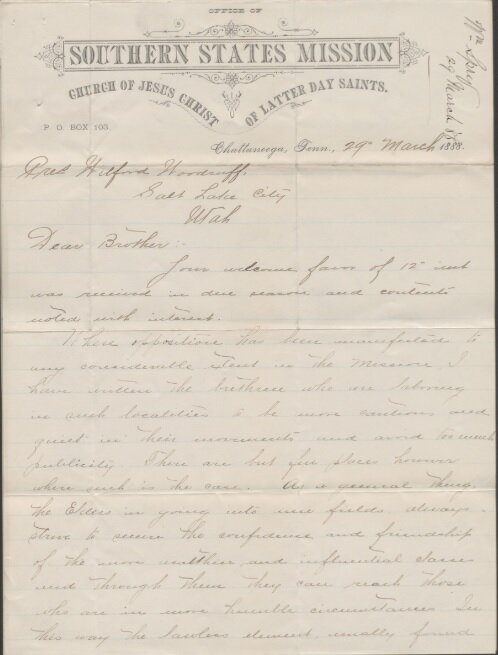 OFFICE OF
SOUTHERN STATES MISSION
CHURCH OF JESUS CHRIST
OF LATTER DAY SAINTS.
P. O. BOX 103.
29 March 88
Chattanooga, Tenn., 29" March 1888.
Prest Wilford Woodruff.
Salt Lake City
Utah
Dear Brother:-
Your welcome favor of 12" inst
was received in due season and contents
noted with interest.
Where opposition has been manifested to
any considerable extent in the Mission, I
have written the brethren who are laboring
in such localities to be more cautious and
quiet in their movements and avoid too much
publicity. There are but few places however
where such is the case. As a general thing,
the Elders in going into new fields, always
strive to secure the confidence and friendship
of the more wealthier and influential classes
and through them they can reach those
who are in more humble circumstances. In
this way the lawless element, usually found